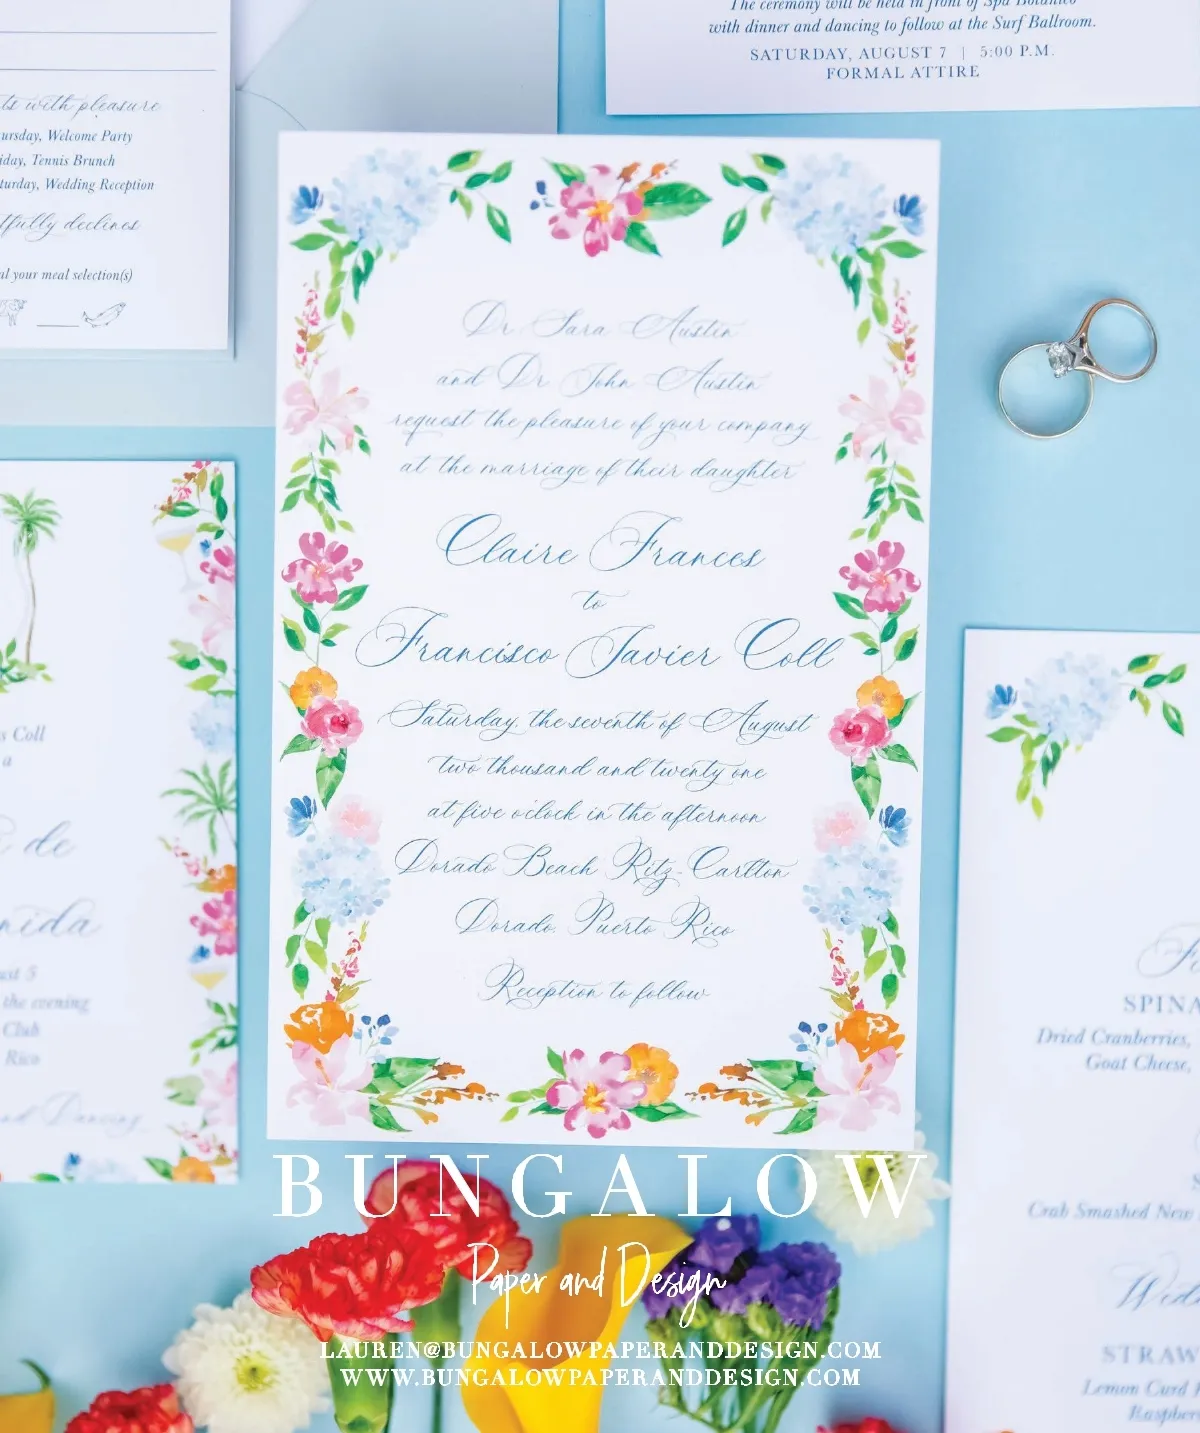 The ceremony will be held in front of Spa Botánico
with dinner and dancing to follow at the Surf Ballroom.
SATURDAY, AUGUST 7 | 5:00 P.M.
FORMAL ATTIRE
with pleasure
Welcome Party
Tennis Brunch
Wedding Reception
declines
your meal selection(s)
Dr. Sara Austin
and Dr. John Austin
request the pleasure of your company
at the marriage of their daughter
Claire Frances
to
Francisco Javier Coll
Saturday, the seventh of August
two thousand and twenty one
at five o'clock in the afternoon
Dorado Beach Ritz-Carlton
Dorado, Puerto Rico
Reception to follow
Coll
a
de
5
the evening
Club
Rico
Dancing
Dried Cranberries,
Goat Cheese,
Crab Smashed New
Lemon Curd
BUNGALOW
Paper and Design
LAUREN@BUNGALOWPAPERANDDESIGN.COM
WWW.BUNGALOWPAPERANDDESIGN.COM